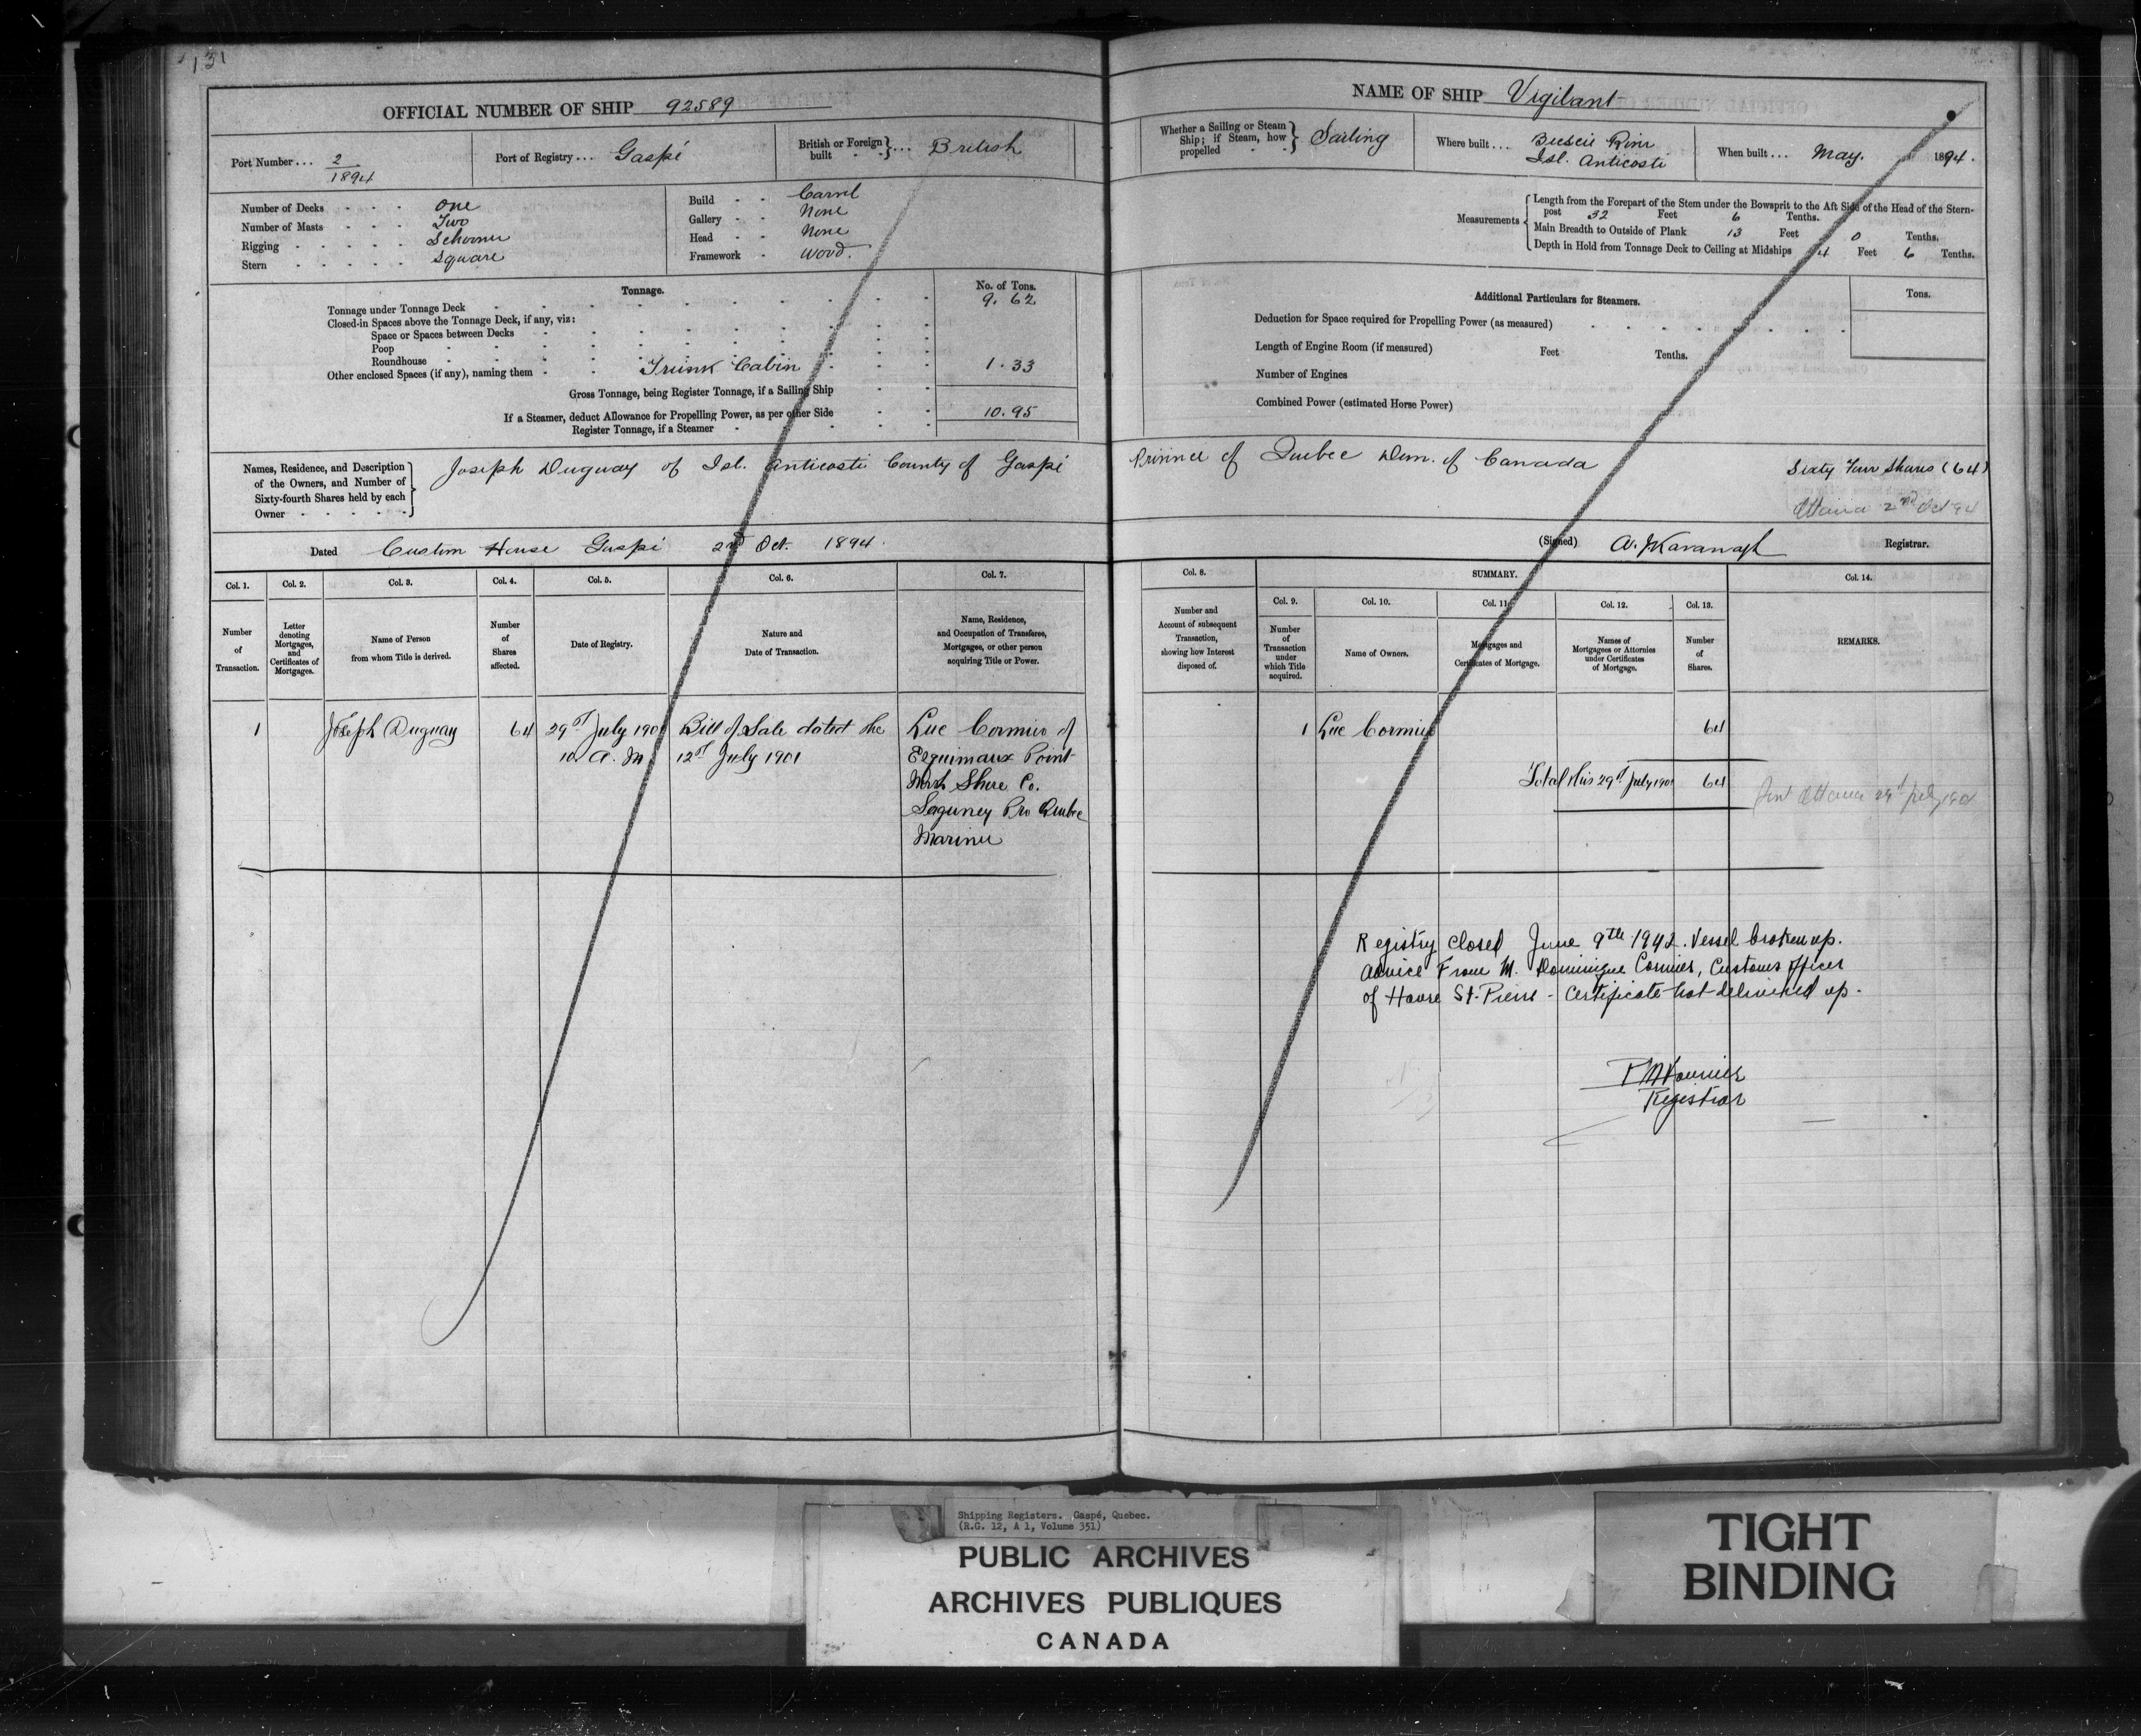 131
OFFICIAL NUMBER OF SHIP 92589
Port Number... 2/1894
Port of Registry... Gaspé
British or Foreign built } ... British
Number of Decks One
Number of Masts Two
Rigging Schooner
Stern Square
Build Carvel
Gallery None
Head None
Framework Wood.
Tonnage.
No. of Tons.
Tonnage under Tonnage Deck 9.62
Closed-in Spaces above the Tonnage Deck, if any, viz:
Space or Spaces between Decks
Poop
Roundhouse
Other enclosed Spaces (if any), naming them Trunk Cabin 1.33
Gross Tonnage, being Register Tonnage, if a Sailing Ship
If a Steamer, deduct Allowance for Propelling Power, as per other Side 10.95
Register Tonnage, if a Steamer
NAME OF SHIP Vigilant
Whether a Sailing or Steam Ship; if Steam, how propelled } Sailing
Where built... River
Isl. Anticosti
When built... May. 1894.
Measurements
Length from the Forepart of the Stem under the Bowsprit to the Aft Side of the Head of the Stern-
post 32 Feet 6 Tenths.
Main Breadth to Outside of Plank 13 Feet 0 Tenths.
Depth in Hold from Tonnage Deck to Ceiling at Midships 4 Feet 6 Tenths.
Additional Particulars for Steamers.
Tons.
Deduction for Space required for Propelling Power (as measured)
Length of Engine Room (if measured) Feet Tenths.
Number of Engines
Combined Power (estimated Horse Power)
Names, Residence, and Description
of the Owners, and Number of
Sixty-fourth Shares held by each
Owner
Joseph Duguay of Isl. Anticosti County of Gaspé Province of Quebec Dom. of Canada Sixty Four Shares (64)
Ottawa 2nd Oct 94
Dated Custom House Gaspé 2nd Oct. 1894.
(Signed) A. J Kavanagh Registrar.
Col. 1. Col. 2. Col. 3. Col. 4. Col. 5. Col. 6. Col. 7.
Number of Transaction.
Letter denoting Mortgages, and Certificates of Mortgages.
Name of Person from whom Title is derived.
Number of Shares affected.
Date of Registry.
Nature and Date of Transaction.
Name, Residence, and Occupation of Transferee, Mortgagee, or other person acquiring Title or Power.
Col. 8. SUMMARY. Col. 14.
Col. 9. Col. 10. Col. 11. Col. 12. Col. 13.
Number and Account of subsequent Transaction, showing how Interest disposed of.
Number of Transaction under which Title acquired.
Name of Owners.
Mortgages and Certificates of Mortgage.
Names of Mortgagees or Attornies under Certificates of Mortgage.
Number of Shares.
REMARKS.
1 Joseph Duguay 64 29th July 1901 Bill of Sale dated the Luc Cormier of
10 A. M. 12th July 1901 Esquimaux Point
North Shore Co.
Saguney Pro Quebec
Mariner
1 Luc Cormier 64
Total this 29th July 1901 64
Sent Ottawa 29th July 1901
Registry closed June 9th 1942. Vessel broken up.
Advice From M. Dominique Cormier, Customs Officer
of Havre St-Pierre - Certificate not delivered up.
Registrar
Shipping Registers. Gaspé, Quebec.
(R.G. 12, A 1, Volume 351)
PUBLIC ARCHIVES
ARCHIVES PUBLIQUES
CANADA
TIGHT
BINDING